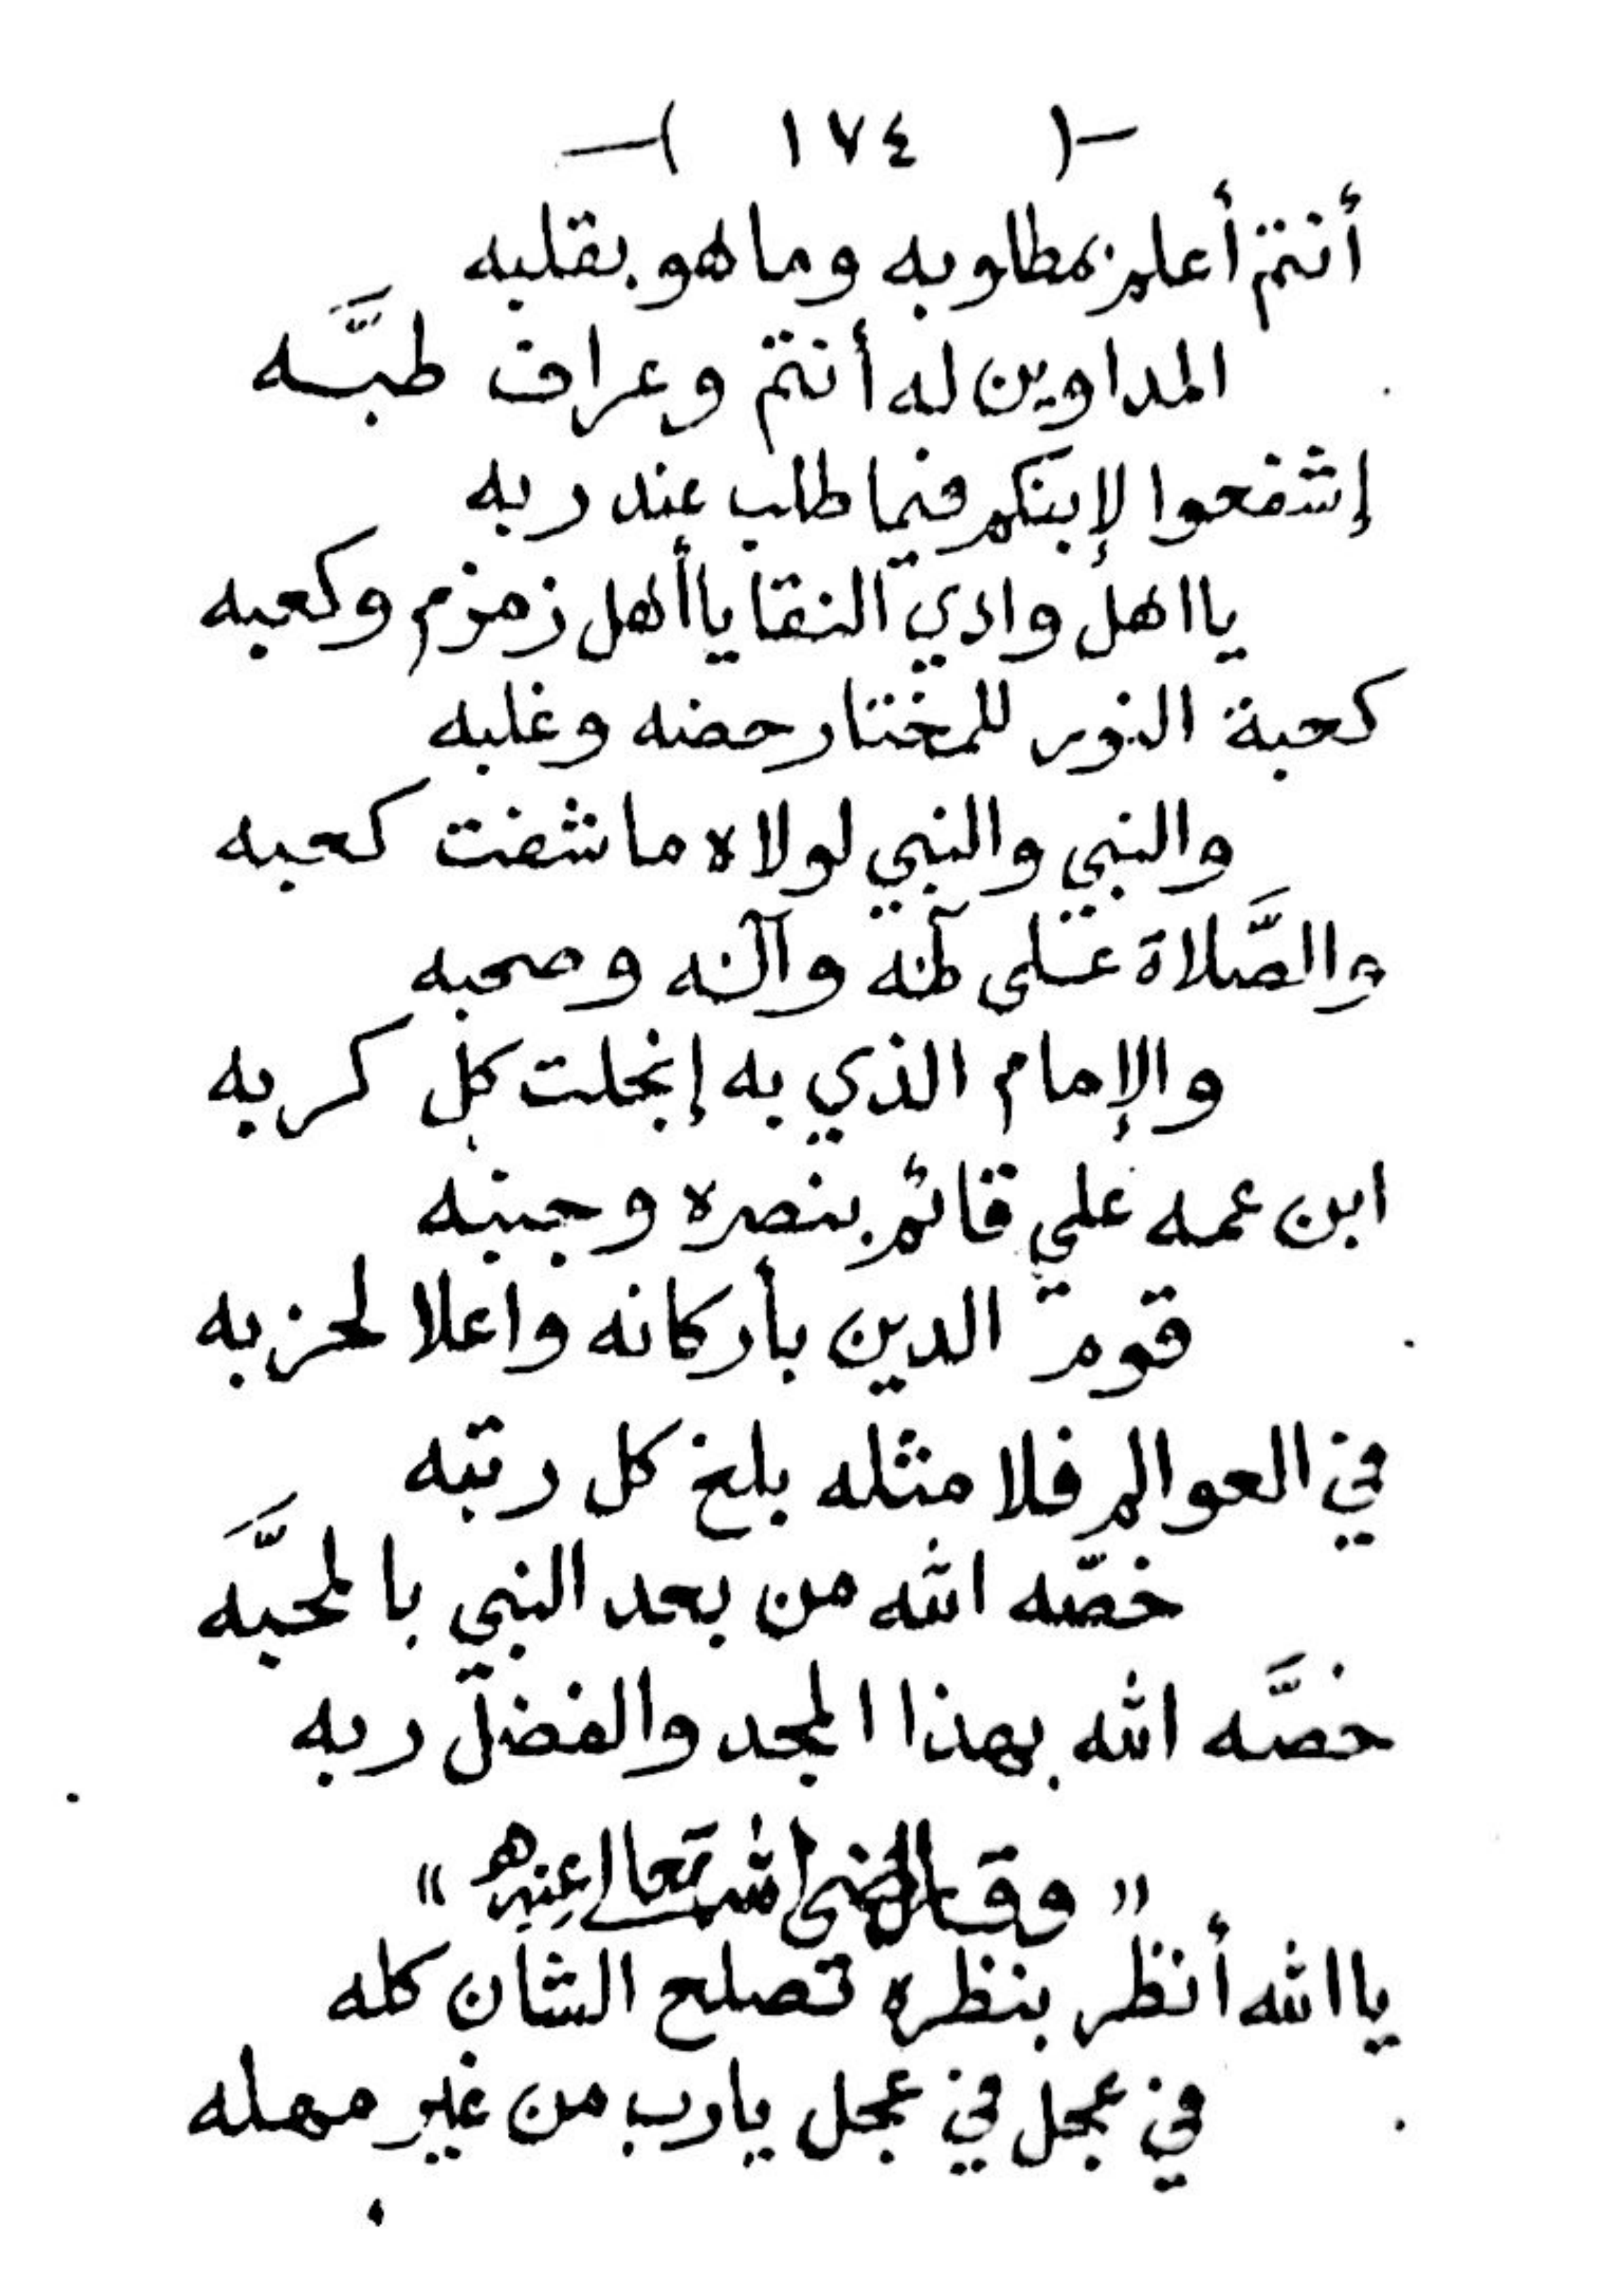 -( ١٧٤ )-
أنتم أعلم بمطلوبه وما هو بقلبه
المداوين له أنتم وعراف طبَّه
إشفعوا لإبنكم فيما طلب عند ربه
يا اهل وادي النقا يا أهل زمزم وكعبه
كعبة النور للمختار حضنه وغلبه
والنبي والنبي لولاه ما شفت كعبه
والصَّلاة على طه وآله وصحبه
والإمام الذي به إنجلت كل كربه
ابن عمه علي قائم بنصره وجبنه
قوم الدين بأركانه واعلا لحزبه
في العوالم فلا مثله بلغ كل رتبه
خصّه الله من بعد النبي بالمحبَّه
خصَّه الله بهذا المجد والفضل ربه
« وقال رضي الله تعالى عنه »
يا الله أنظر بنظره تصلح الشان كله
في عجل في عجل يارب من غير مهله